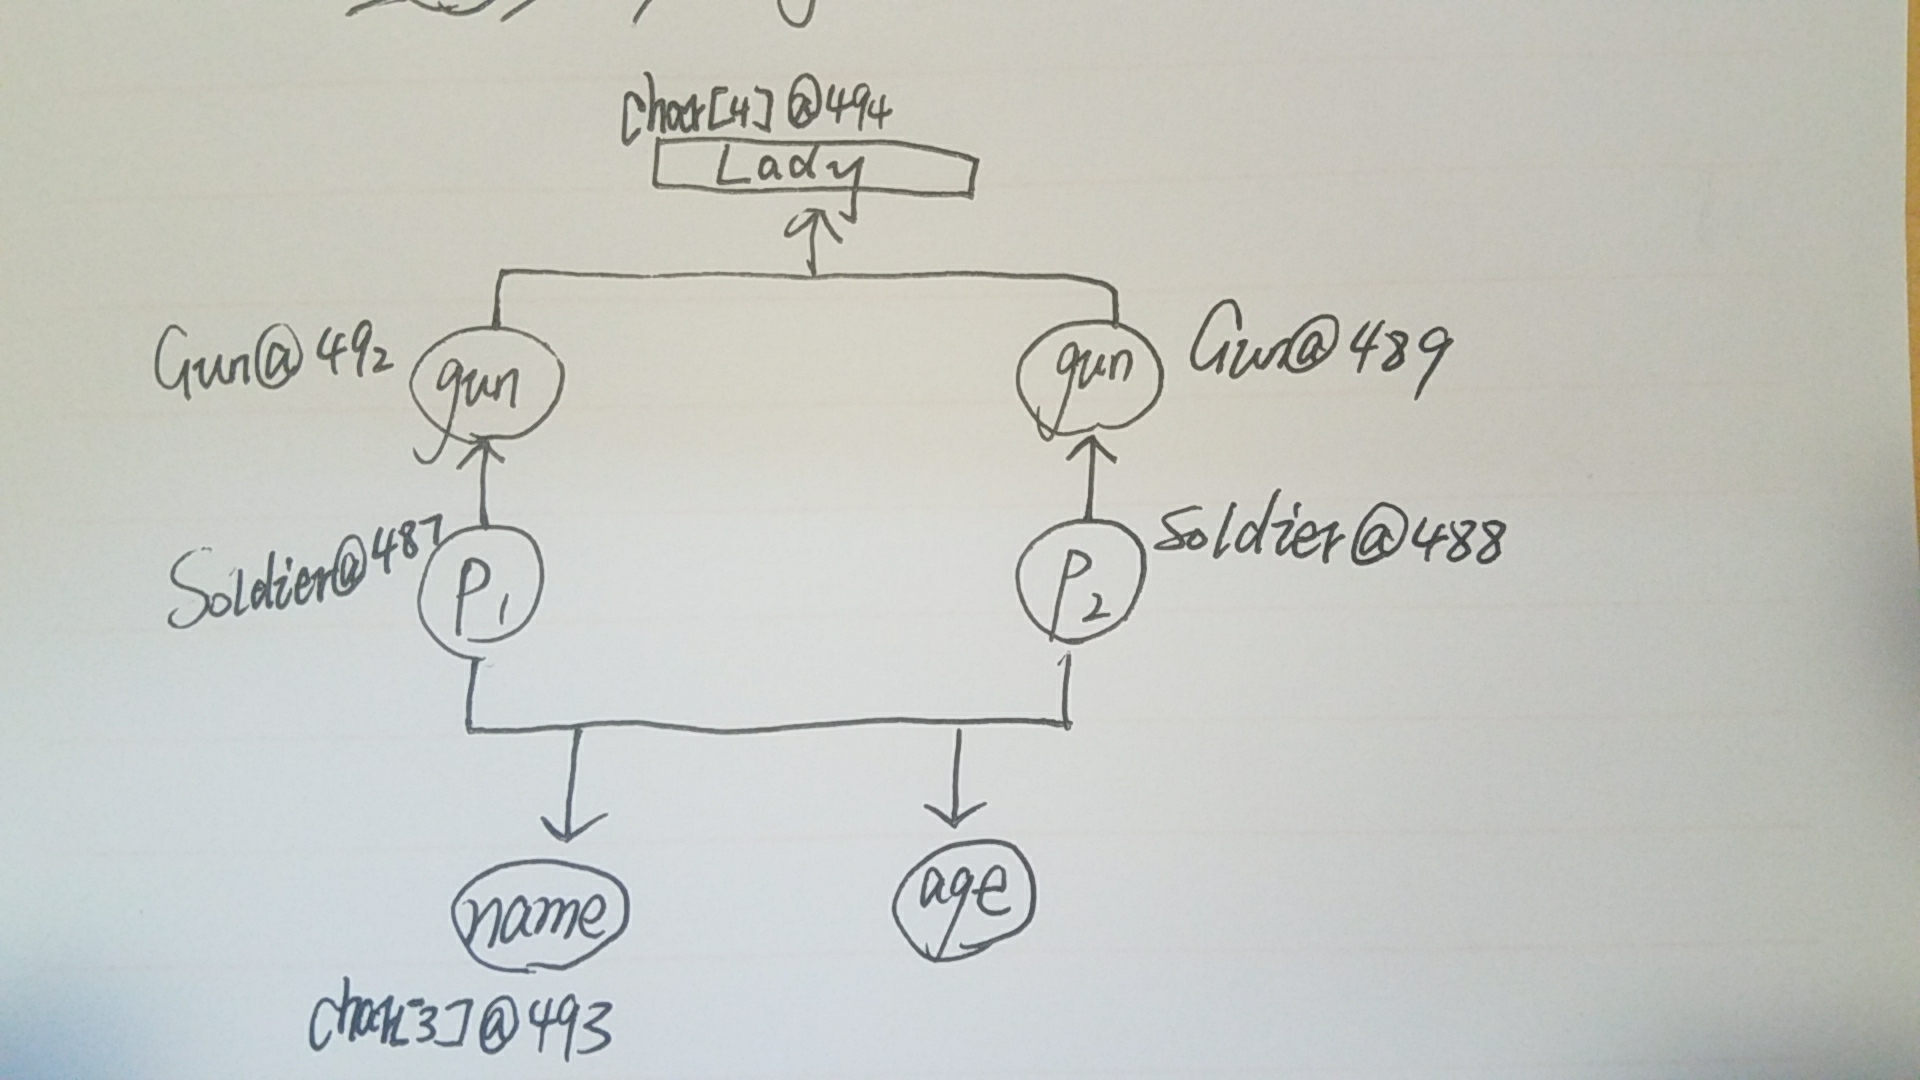 char[4]@494
Lady
Gun@492
gun
gun
Gun@489
Soldier@487
P1
P2
Soldier@488
name
age
char[3]@493